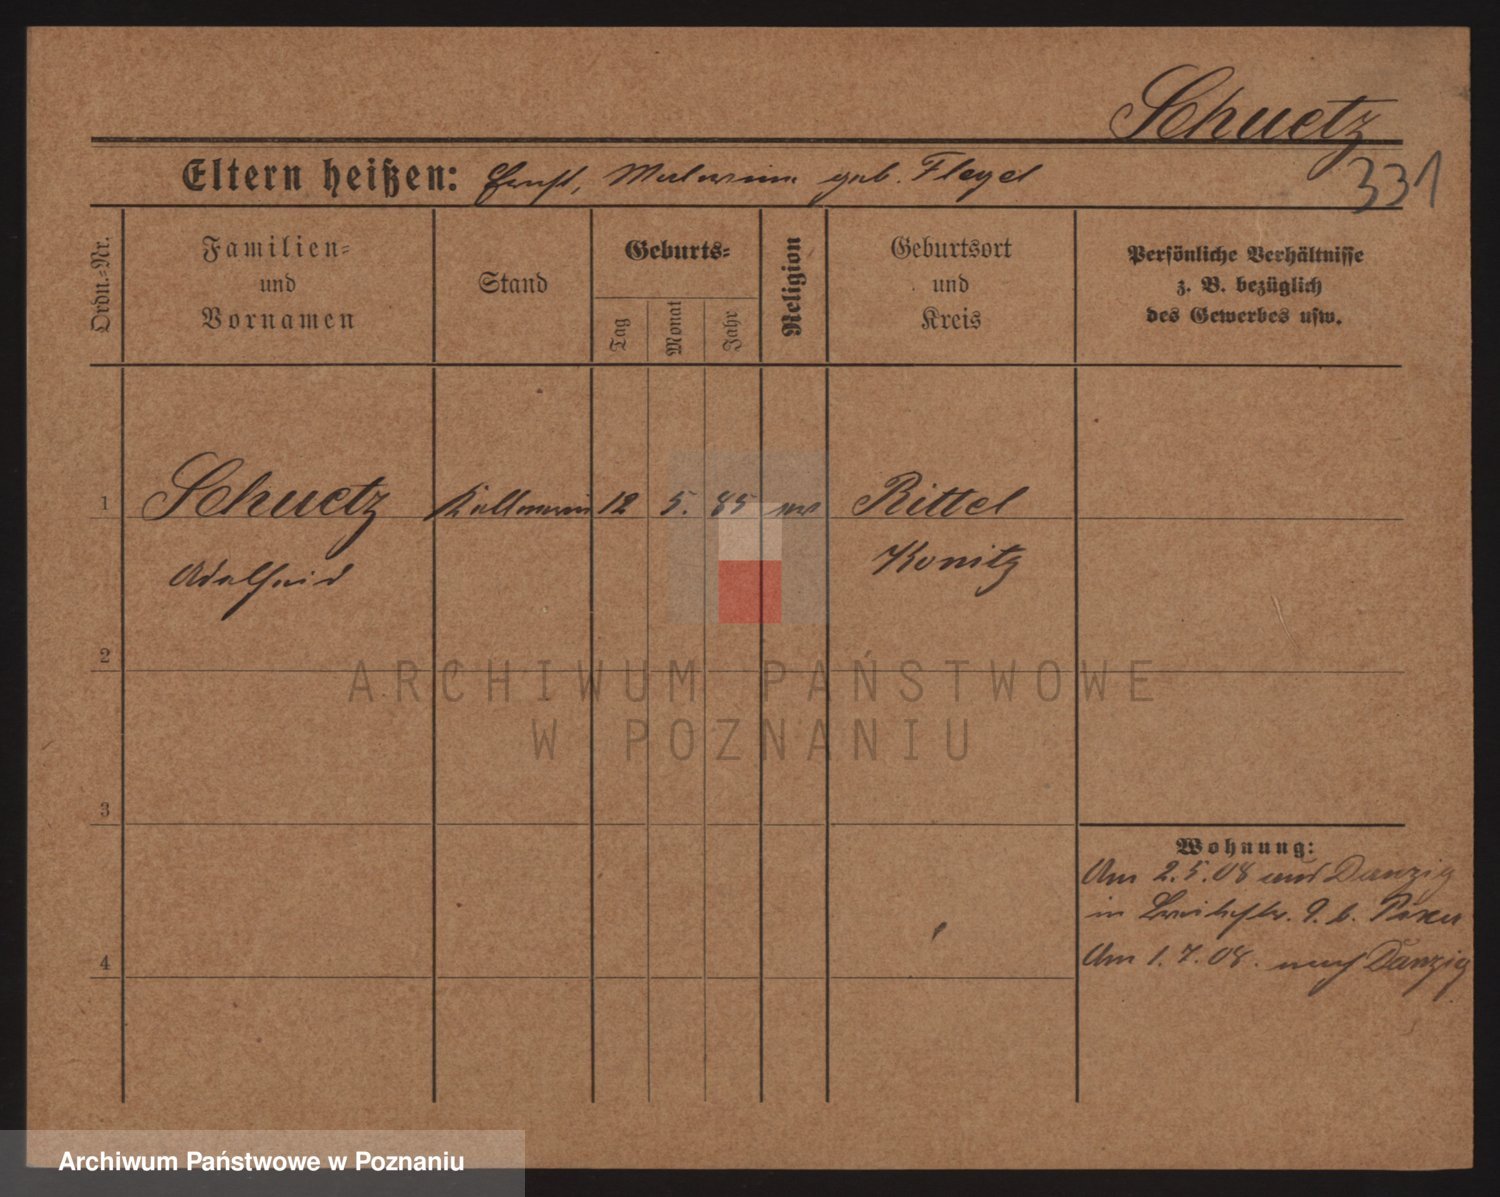 Schuetz
331
Eltern heißen: Ernst, geb. Flegel
Ordn.=Nr.
Familien=
und
Vornamen
Stand
Geburts=
Tag
Monat
Jahr
Religion
Geburtsort
und
Kreis
Persönliche Verhältnisse
z. B. bezüglich
des Gewerbes usw.
1
Schuetz
Kellnerin
12
5.
85
ev
Rittel
Adelheid
Konitz
2
ARCHIWUM PAŃSTWOWE
W POZNANIU
3
Wohnung:
Am 2.5.08 aus Danzig
in Breitestr. 9. b.
4
Am 1.7.08. nach Danzig
Archiwum Państwowe w Poznaniu